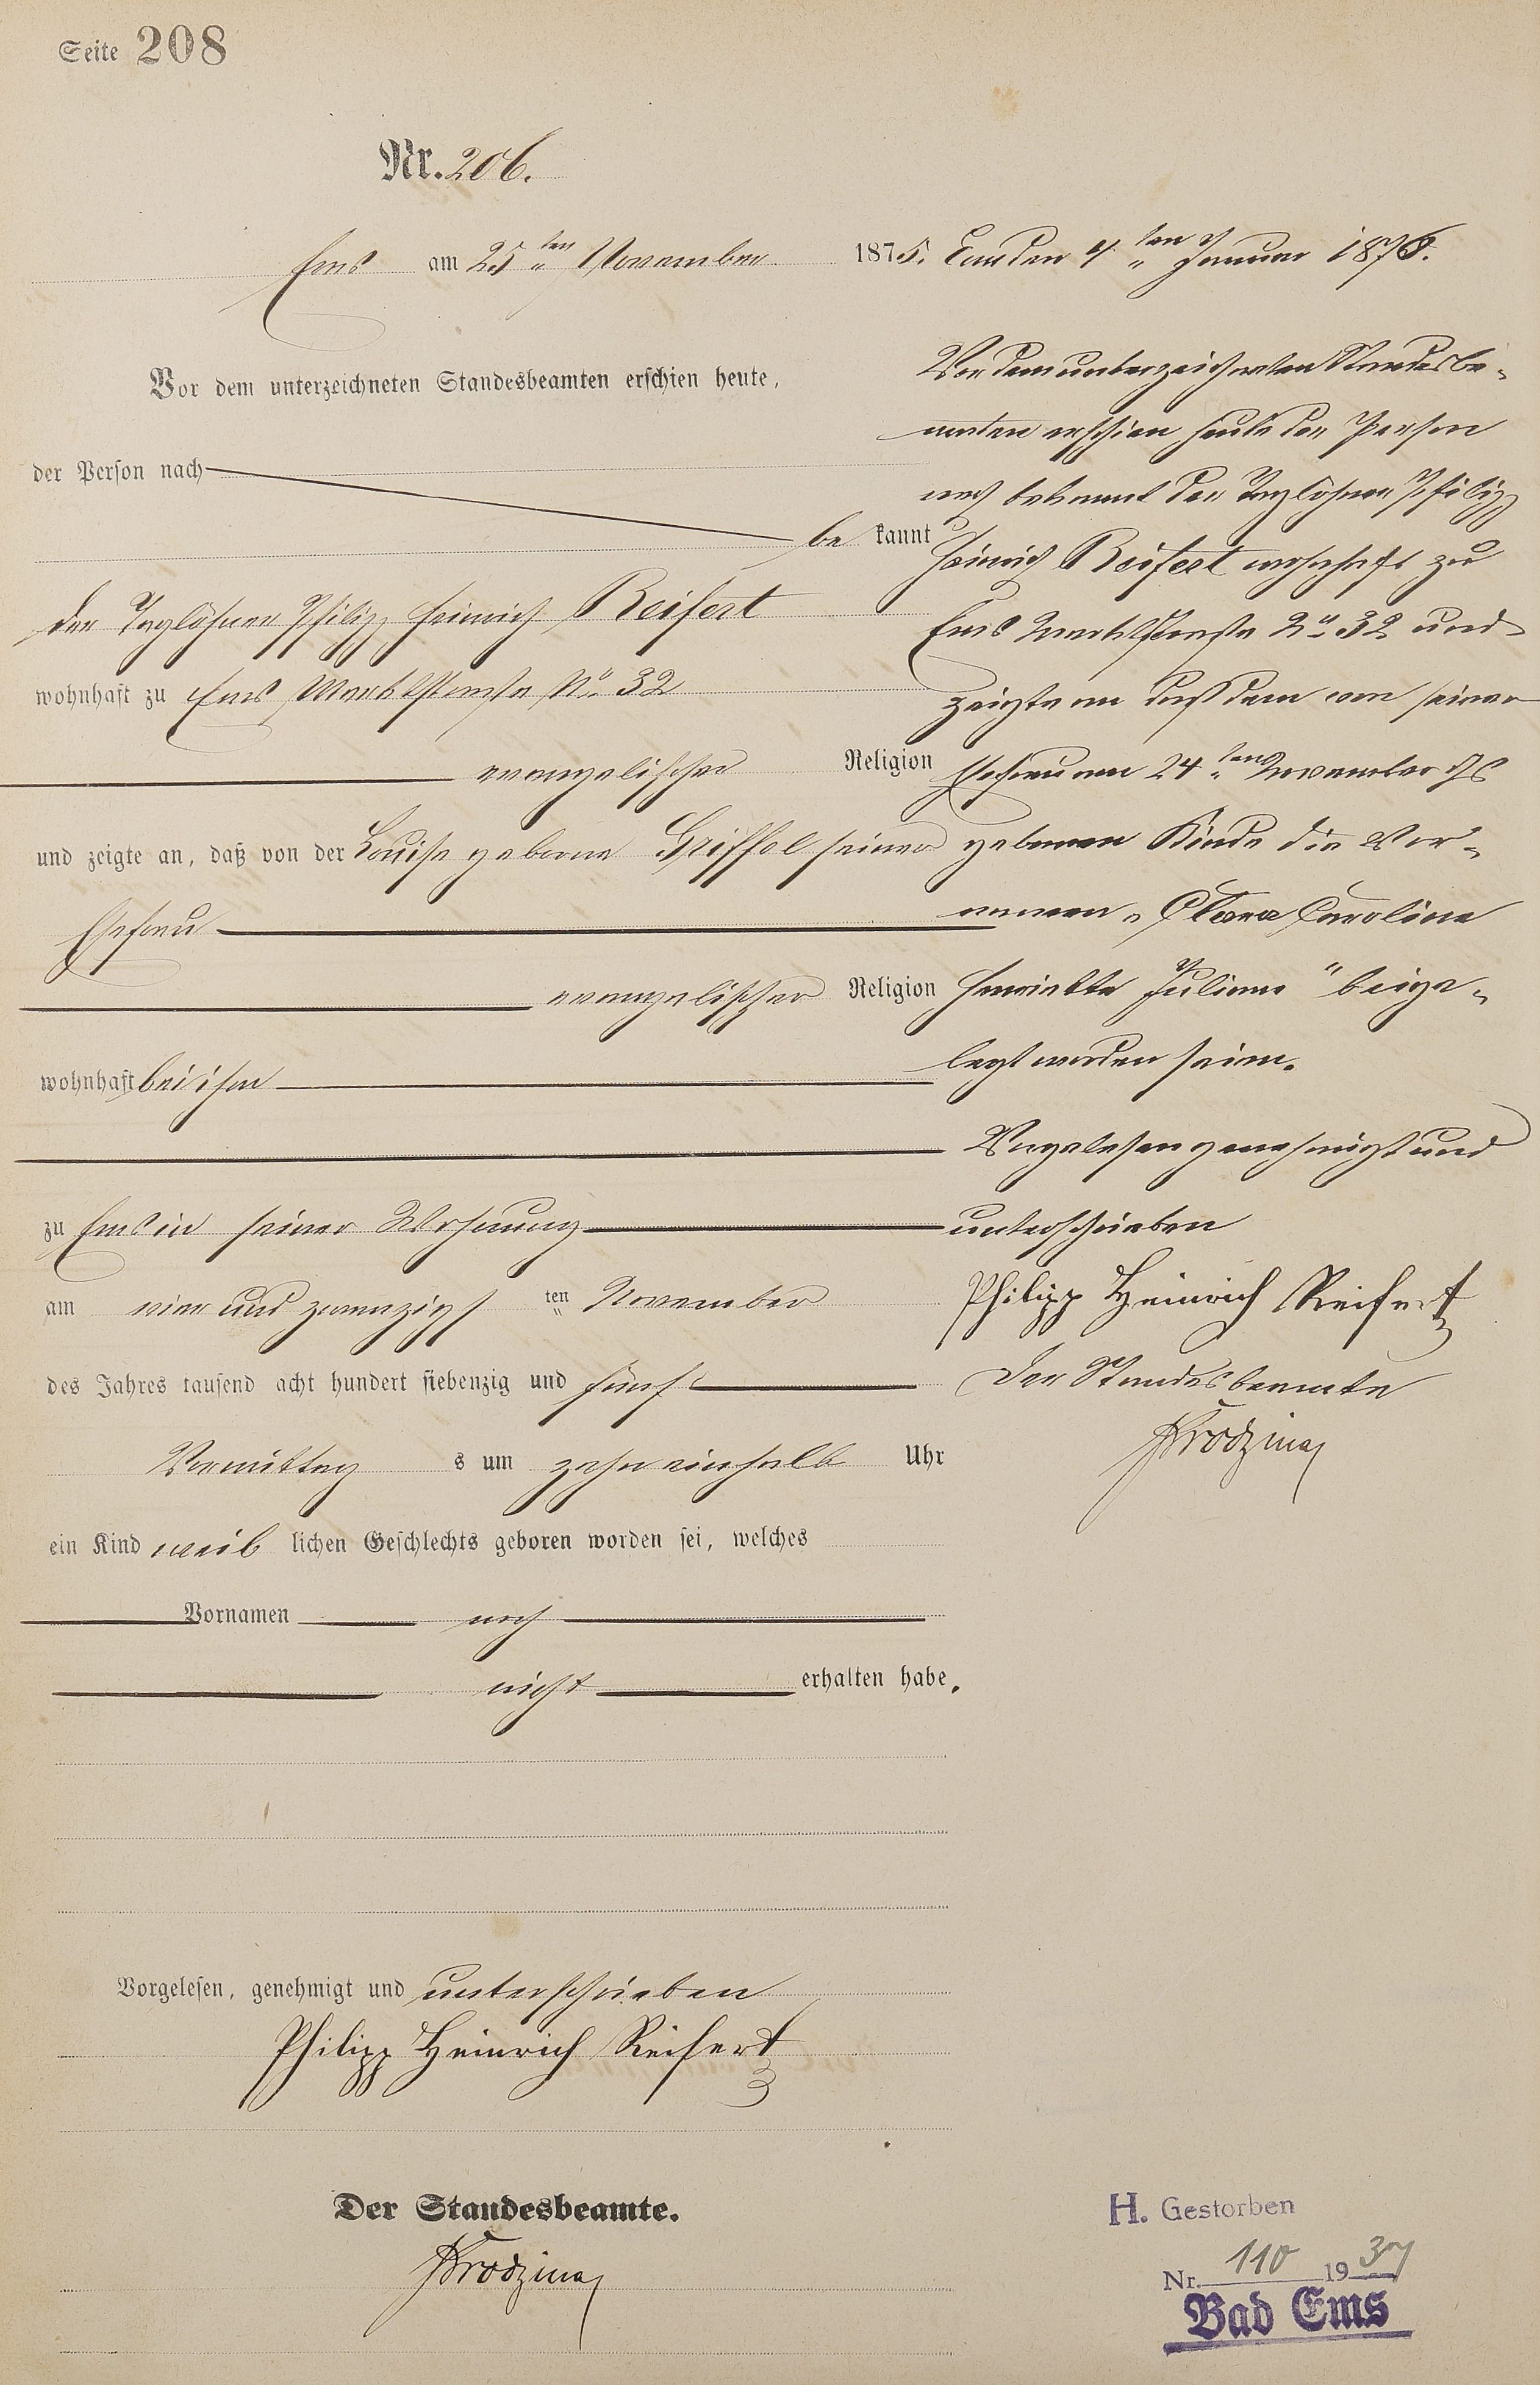 Seite 208
Nr. 206.
Ems am 25ten November 1875.
Vor dem unterzeichneten Standesbeamten erschien heute,
der Person nach
be kannt
der Taglöhner Philipp Heinrich Reifert
wohnhaft zu Ems Marktstraße No 32
evangelischer Religion
und zeigte an, daß von der Louise geborne Griffel seiner
Ehefrau
evangelischer Religion
wohnhaft bei ihm
zu Ems in seiner Wohnung
am vier und zwanzigsten November
des Jahres tausend acht hundert siebenzig und fünf
Vormittags um zehn einhalb Uhr
ein Kind weiblichen Geschlechts geboren worden sei, welches
Vornamen noch
nicht erhalten habe.
Vorgelesen, genehmigt und unterschrieben
Philipp Heinrich Reifert
Der Standesbeamte.
Brodzina
Ems den 4ten Januar 1876.
Vor dem unterzeichneten Standesbe-
amten erschien heute der Person
nach bekannt der Taglöhner Philipp
Heinrich Reifert wohnhaft zu
Ems Marktstraße No 32 und
zeigte an daß dem von seiner
Ehefrau am 24ten November
gebornen Kinde die Vor-
namen „Clara Caroline
Henriette Juliane" beige-
legt worden seien.
Vorgelesen genehmigt und
unterschrieben
Philipp Heinrich Reifert
Der Standesbeamte
Brodzina
H. Gestorben
Nr. 110 1937
Bad Ems